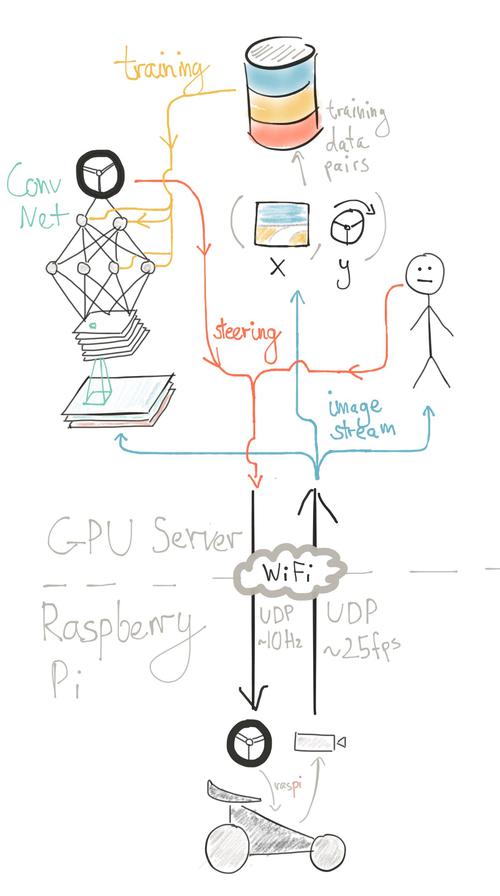 training
training
data
pairs
Conv
Net
( , )
x y
steering
image
stream
GPU Server
WiFi
Raspberry
Pi
UDP
~10Hz
UDP
~25fps
raspi